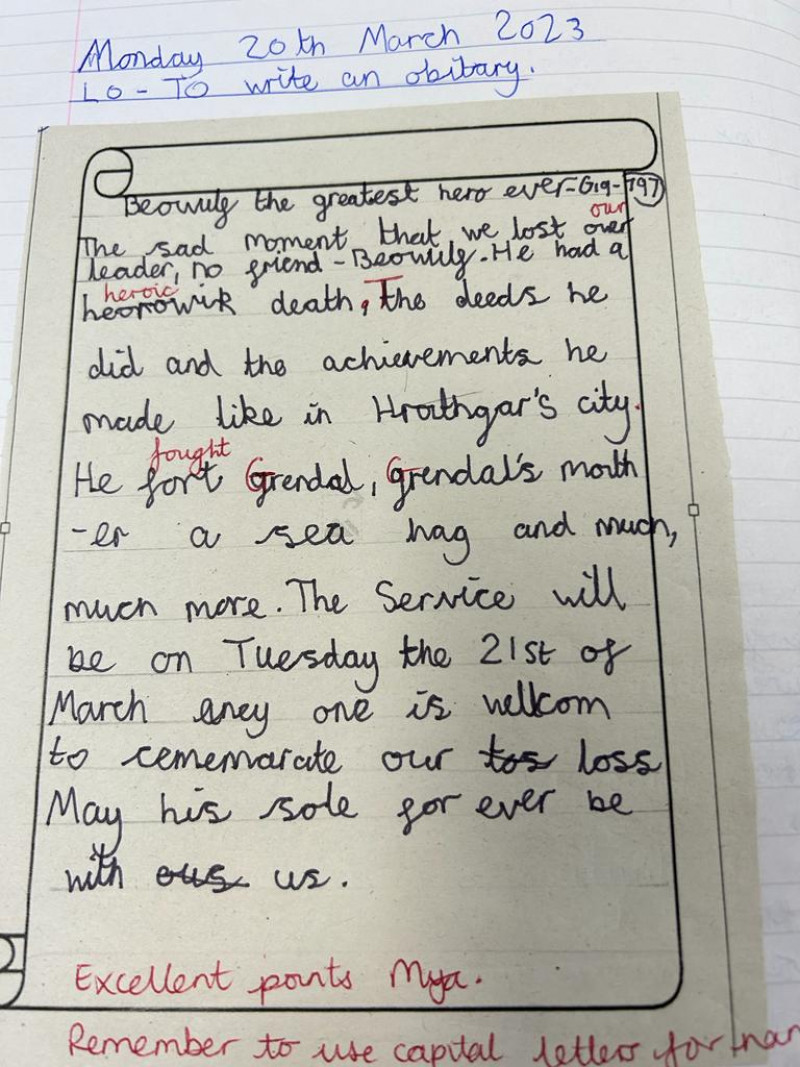 Monday 20th March 2023
LO - TO write an obitary.
Beowulf the greatest hero ever-619-797
our
The sad moment that we lost over
leader, no friend - Beowulf. He had a
heroic
heorowik death, The deeds he
did and the achievements he
made like in Hrothgar's city.
fought
He fort Grendal, Grendal's moth
-er a sea hag and much,
much more. The Service will
be on Tuesday the 21st of
March eney one is wellcom
to cememarate our tos loss
May his sole for ever be
with ous us.
Excellent points Mya.
Remember to use capital letters for nam